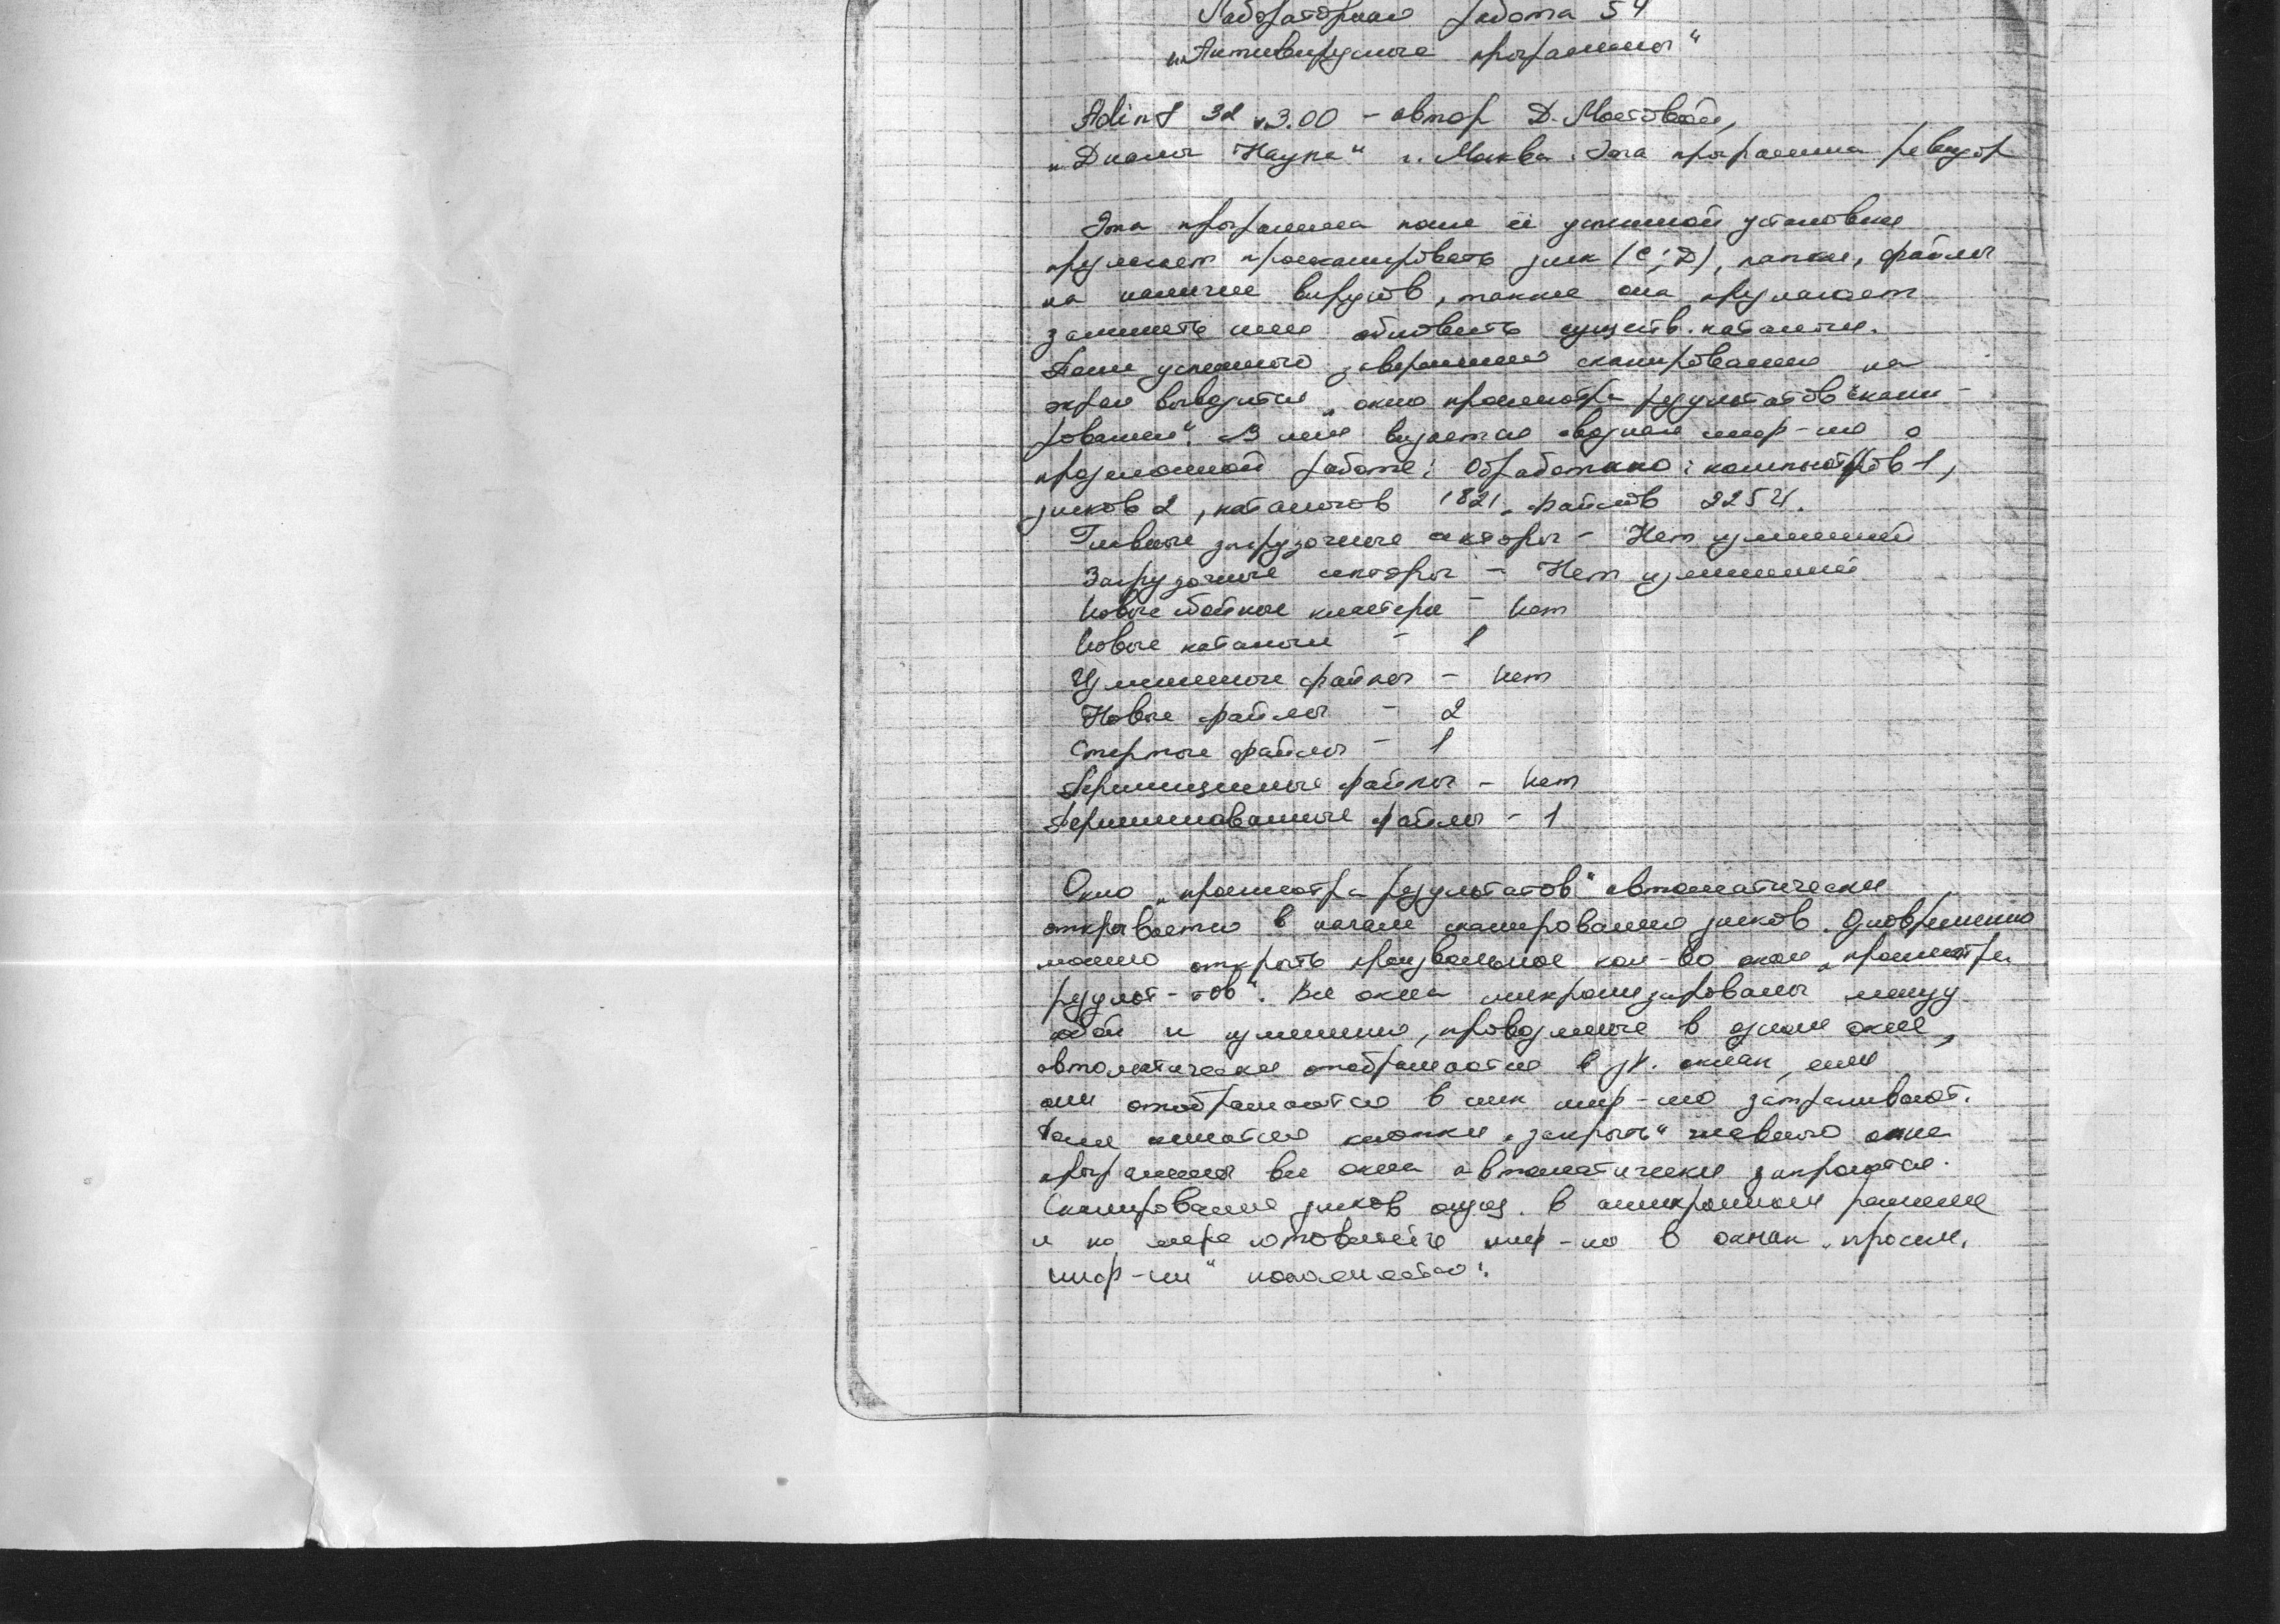 Лабораторная работа 54
„Антивирусные программы“
Adinf 32 v3.00 – автор Д. Мостовой,
„Диалог Наука“ г. Москва. Эта программа ревизор
Эта программа после её успешной установки
предлагает просканировать диск (C; D), папки, файлы
на наличие вирусов, также она предлагает
или обновить существ. каталоги.
После успешного завершения сканирования на
экран выводится „окно просмотра результатов скани-
рования“. В нём выдаётся сводная инфор-ия о
проделанной работе: Обработано: компьютеров 1,
дисков 2, каталогов 1821, файлов 2254.
Главные загрузочные сектора – Нет изменений
Загрузочные сектора – Нет изменений
Новые сбойные кластеры – нет
Новые каталоги – 1
Измененные файлы – нет
Новые файлы – 2
Стертые файлы – 1
файлы – нет
Переименованные файлы – 1
Окно „просмотра результатов“ автоматически
открывается в начале сканирования дисков. Одновременно
можно открыть произвольное кол-во окон „просмотра
результ-тов“. Все окна синхронизированы между
собой и изменения, проводимые в одном окне,
автоматически отображаются в др. окнах, если
они отображаются в них инф-ию затрагивают.
После нажатия кнопки „закрыть“ главного окна
программы все окна автоматически закроются.
Сканирование дисков осущ. в асинхронном режиме
и по мере готовности инф-ия в окнах „просм.
инфор-ии“ пополняется.